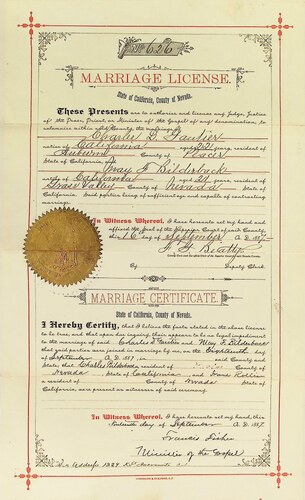 No 626
MARRIAGE LICENSE.
State of California, County of Nevada.
These Presents are to authorize and license any Judge, Justice
of the Peace, Priest, or Minister of the Gospel of any denomination, to
solemnize within said County, the marriage of
Charles D.
California aged 22 years, resident of
Auburn County of Placer
State of California, and
May F. Bilderback
of California aged 21 years, resident of
Grass Valley County of Nevada
State of California. Said parties being of sufficient age and capable of contracting
marriage.
In Witness Whereof, I have hereunto set my hand and
affixed the Seal of the Superior Court of said County
this 16 day of September A.D. 1897
Beatty
Deputy Clerk.
MARRIAGE CERTIFICATE.
State of California, County of Nevada.
I Hereby Certify, that I believe the facts stated in the above license
to be true, and that upon due inquiry, there appears to be no legal impediment
to the marriage of said Charles D. and May F. Bilderback
that said parties were joined in marriage by me, on the Sixteenth day
of September A.D. 1897, in said County and
State; that Charles Bilderback a resident of County of
Nevada State of California and
a resident of County of Nevada State of
California, were present as witnesses of said ceremony.
In Witness Whereof, I have hereunto set my hand, this
Sixteenth day of September A.D. 1897.
Francis
Minister of the Gospel
Address 1329